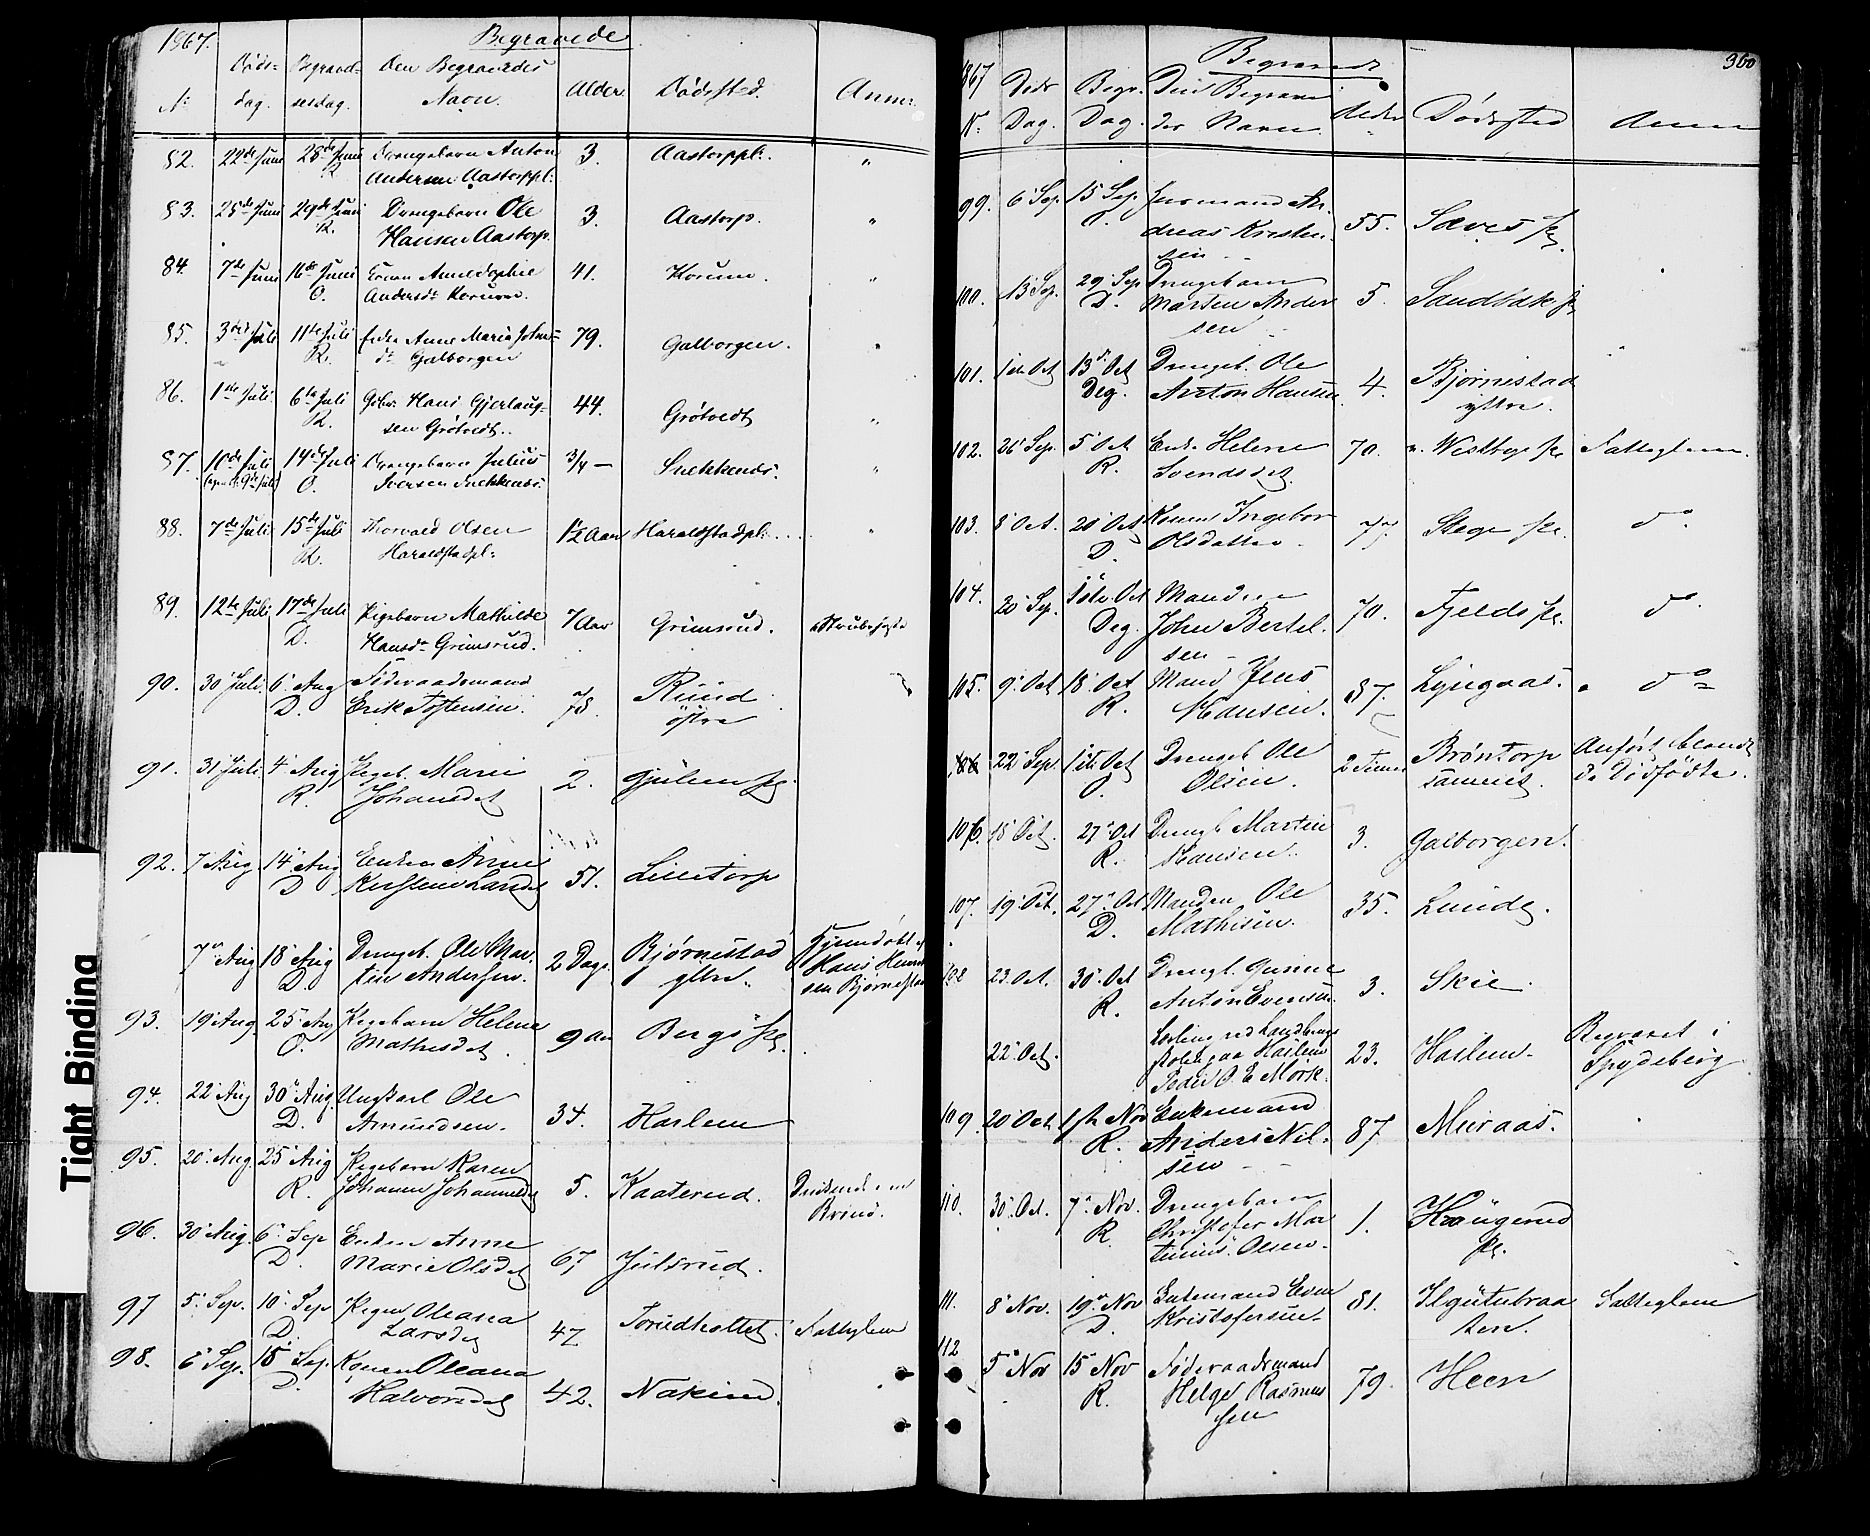 1867. Begravede
No Døds- dag. Begravel- sesdag. Den Begravedes Navn. Alder Dødssted. Anm.
82. 22de Juni 28de Juni R. Drengebarn Anton
Andersen Aastorppl: 3. Aastorppl. "
83. 25de Juni 29de Juni R. Drengebarn Ole
Hansen Aastorp. 3. Aastorp. "
84. 7de Juni 16de Juni O. Konen Anne Sophie
Andersdt Korum. 41. Korum. "
85. 3die Juli 11te Juli R. Enke Anne Maria Johns-
dt Galborgen 79. Galborgen. "
86. 1ste Juli. 6te Juli R. Gbr. Hans Gjerlaug-
sen Grötvedt.. 44. Grötvedt "
87. 10de Juli 14de Juli O. Drengebarn Julius
Iversen Snekkenes. 3/4 - Snekkenes. "
88. 7de Juli 15de Juli R. Thorvald Olsen
Haraldstadpl: 1½ Aar Haraldstadpl: "
89. 12te Juli 17de Juli D. Pigebarn Mathilde
Hansdt Grimsrud. 7 Aar Grimsrud. Strubehoste
90. 30 Juli. 6 Aug D. Føderaadsmand
Erik Tostensen. 78. Rund
østre
91. 31 Juli 4 Aug R. Pigeb. Marie
Johansdat 2. Gjulem pl.
92. 7 Aug 14 Aug D Enken Anne
Kirstine Larsdt 51. Lilletorp
7 Aug 18 Aug D. Drengeb. Ole Mar-
tin Andersen. 2 Dage. Bjørnestad
ytre. Hjemdøbt af
Hans
sen Bjørnestad
93. 19 Aug. 25 Aug O. Pigebarn Helene
Mathisdat. 9 Aar Bergs pl.
94. 22 Aug 30 Aug. D. Ungkarl Ole
Amundsen. 34. Haslem
95. 20 Aug. 25 Aug R. Pigebarn Karen
Johanne Johannesdt 5. Kaaterud. Druknede i en
Brønd.
96. 30 Aug. 6 Sep D. Enken Anne
Marie Olsdat 67 Julsrud.
97 5 Sep. 10 Sep D. Pigen Oleana
Larsdt 47 Torudholtet. Fattiglem
98. 6 Sep. 15 Sep. D. Konen Oleana
Halvorsdat 42. Nakim.
360
1867 Begravede
No Døds Dag. Begr. Dag. Den Begrave- des Navn. Alder Dødssted Anm
99. 6 Sep. 15 Sep. O. Husmand An-
dreas Kristen-
sen 55. Saves pl.
100. 13 Sep. 29 Sep D. Drengebarn
Martin Ander-
sen 5. Sandbak pl.
101. 1ste Oct 13de Oct Deg. Drengeb. Ole
Anton Hansen 4. Bjørnestad
yttre.
102. 26 Sep. 5 Oct R. Enke Helene
Svendsdat. 70. n. Westbye pl. Fattiglem.
103. 8 Oct. 20 Oct D. Konen Ingebor
Olsdatter 77. Stege pl. do.
104. 20 Sep. 1ste Oct Deg. Manden
John Bertel-
sen 70. Fjelds pl. do.
105. 9 Oct 18 Oct R. Mand Jens
Hansen. 87. Lyngaas. do
22 Sep 1ste Oct O. Drengeb Ole
Olsen. 2 Timer Brøntorp
Anført blandt
de Dødfødte.
106. 18 Oct. 27 Oct R. Drengb Martin
Hansen. 3. Galborgen.
107. 19 Oct. 27 Oct D. Manden Ole
Mathisen. 35. Lunde.
108 23 Oct. 30 Oct R. Drengb. Gunne
Anton Evensen. 3. Skie.
22 Oct. Lærling ved Landbrugs
skolen paa Haslem
Peder O. E. Mork. 23. Haslem. Begravet i
Spydeberg
109. 20 Oct. 1ste Nov R. Enkemand
Anders Nil-
sen 87 Muraas.
110. 30 Oct. 7 Nov. R Drengebarn
Christofer Mar
tinius Olsen. 1. Haugerud
pl.
111. 8 Nov. 19 Nov D. Enkemand Even
Kristofersen 81. Fattiglem
112 5 Nov 15 Nov R. Føderaadsmand
Helge Rasmus
sen 79. Heen
Tight Binding